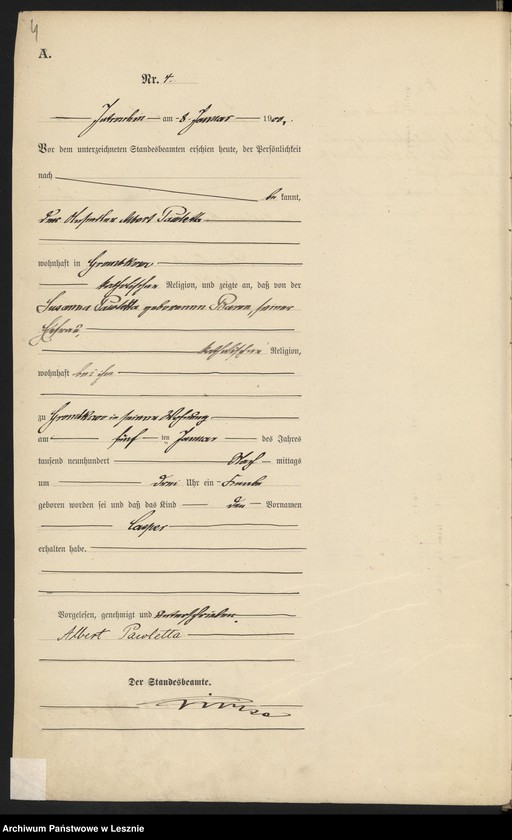 4
A.
Nr. 4.
Jutroschin am 8. Januar 1900.
Vor dem unterzeichneten Standesbeamten erschien heute, der Persönlichkeit
nach
be kannt,
der Albert Pawletta
wohnhaft in
katholischer Religion, und zeigte an, daß von der
Susanna Pawletta geborenen seiner
Ehefrau,
katholischer Religion,
wohnhaft bei ihm
zu in seiner Wohnung
am fünf ten Januar des Jahres
tausend neunhundert Nach mittags
um drei Uhr ein
geboren worden sei und daß das Kind den Vornamen
Casper
erhalten habe.
Vorgelesen, genehmigt und unterschrieben.
Albert Pawletta
Der Standesbeamte.
Archiwum Państwowe w Lesznie